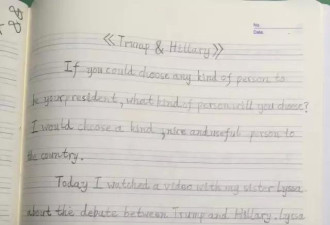 No.
Date
《Trump & Hillary》
If you could choose any kind of person to
be your president, what kind of person will you choose?
I would choose a kind, nice and useful person to
the country.
Today I watched a video with my sister Lyssa
about the debate between Trump and Hillary. Lyssa